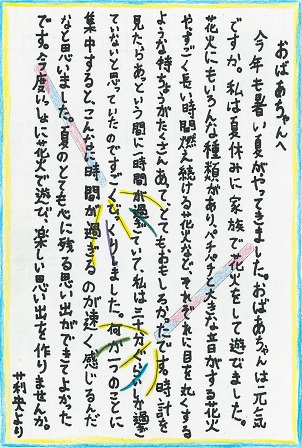 おばあちゃんへ
今年も暑い夏がやってきました。おばあちゃんは元気
ですか。私は夏休みに家族で花火をして遊びました。
花火にもいろんな種類があり、パチパチと大きな音がする花火
やすごく長い時間燃え続ける花火など、それぞれに目を丸くする
ような特ちょうがたくさんあって、とてもおもしろかったです。時計を
見たら、あっという間に一時間が過ぎていて、私は三十分ぐらいしか過ぎ
ていないと思っていたのですごくびっくりしました。何か一つのことに
集中すると、こんなに時間が過ぎるのが速く感じるんだ
なと思いました。夏のとても心に残る思い出ができてよかった
です。今度いっしょに花火で遊び、楽しい思い出を作りませんか。
より